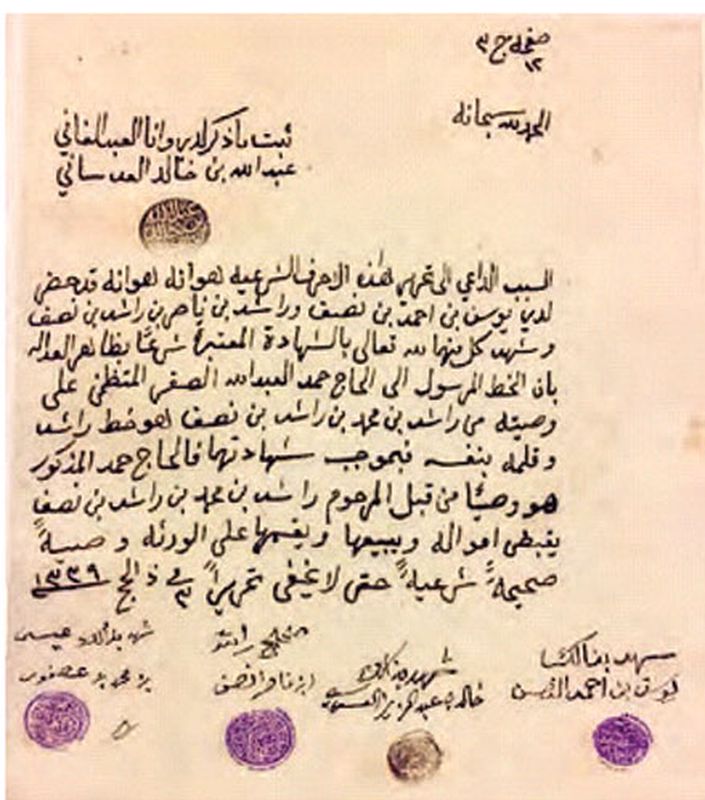 صفحه ج ٣
١٢
الحمد لله سبحانه
ثبت ما ذكر لدي وانا العبد الفاني
عبدالله بن خالد العدساني
السبب الداعي الى تحرير هذه الاحرف الشرعيه هوانه لهوانه قد حضر
لدي يوسف بن احمد بن نصف وراشد بن ناصر بن راشد بن نصف
وشهد كل منهما لله تعالى بالشهادة المعتبرة شرعًا بظاهر العداله
بان الخط المرسول الى الحاج حمد العبدالله الصقر المتظمن على
وصيته من راشد بن محمد بن راشد بن نصف هو خط راشد
وقلمه بنفسه فبموجب شهادتهما فالحاج حمد المذكور
هو وصيًا من قبل المرحوم راشد بن محمد بن راشد بن نصف
يقبظ امواله ويبيعها ويقسمها على الورثه وصيةً
صحيحةً شرعيةً حتى لا يخفى تحريرًا ٣ في ذ الحج ١٣٣٩
شهد بذلك
يوسف بن احمد النصف
شهد بذلك
خالد بن عبدالعزيز
راشد
ابن ناصر النصف
شهد بذالك عيسى
بن محمد بن عصفور